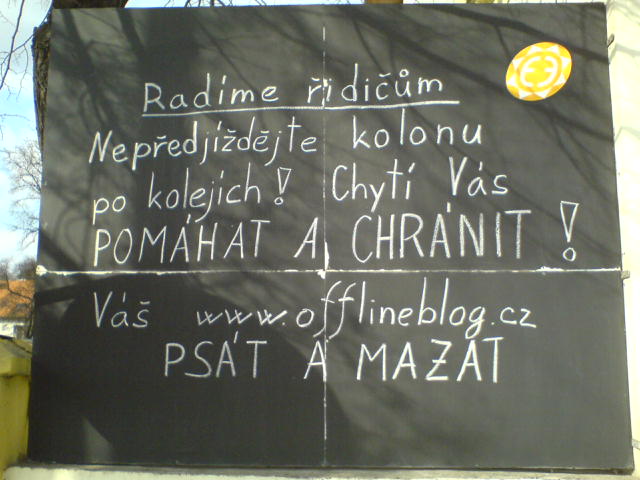 Radíme řidičům
Nepředjíždějte kolonu
po kolejích! Chytí Vás
POMÁHAT A CHRÁNIT!
Váš www.offlineblog.cz
PSÁT A MAZAT